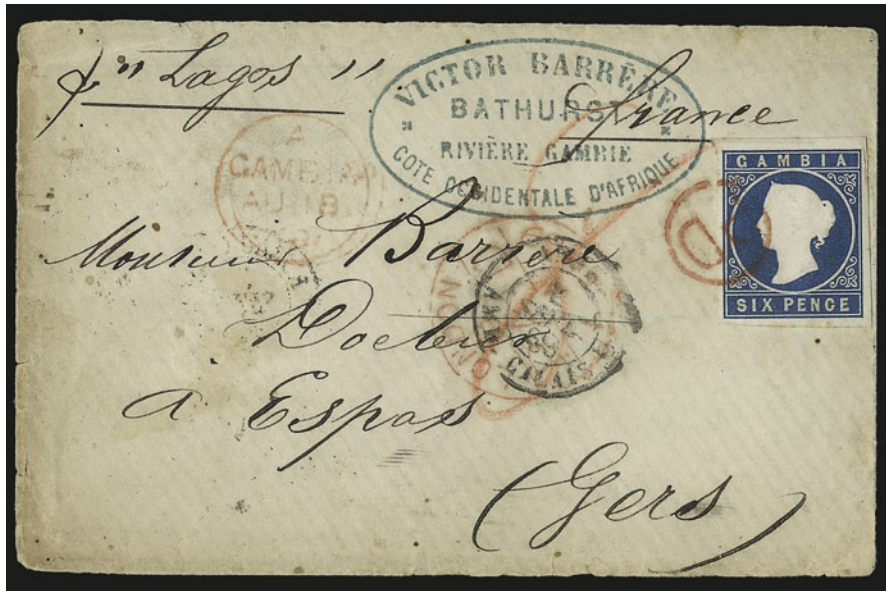 p "Lagos"
France
VICTOR BARRÈRE
BATHURST
RIVIÈRE GAMBIE
COTE OCCIDENTALE D'AFRIQUE
A
GAMBIA
AU 18
GAMBIA
SIX PENCE
Monsieur Barrère
à Espas
(Gers)
LONDON
CALAIS